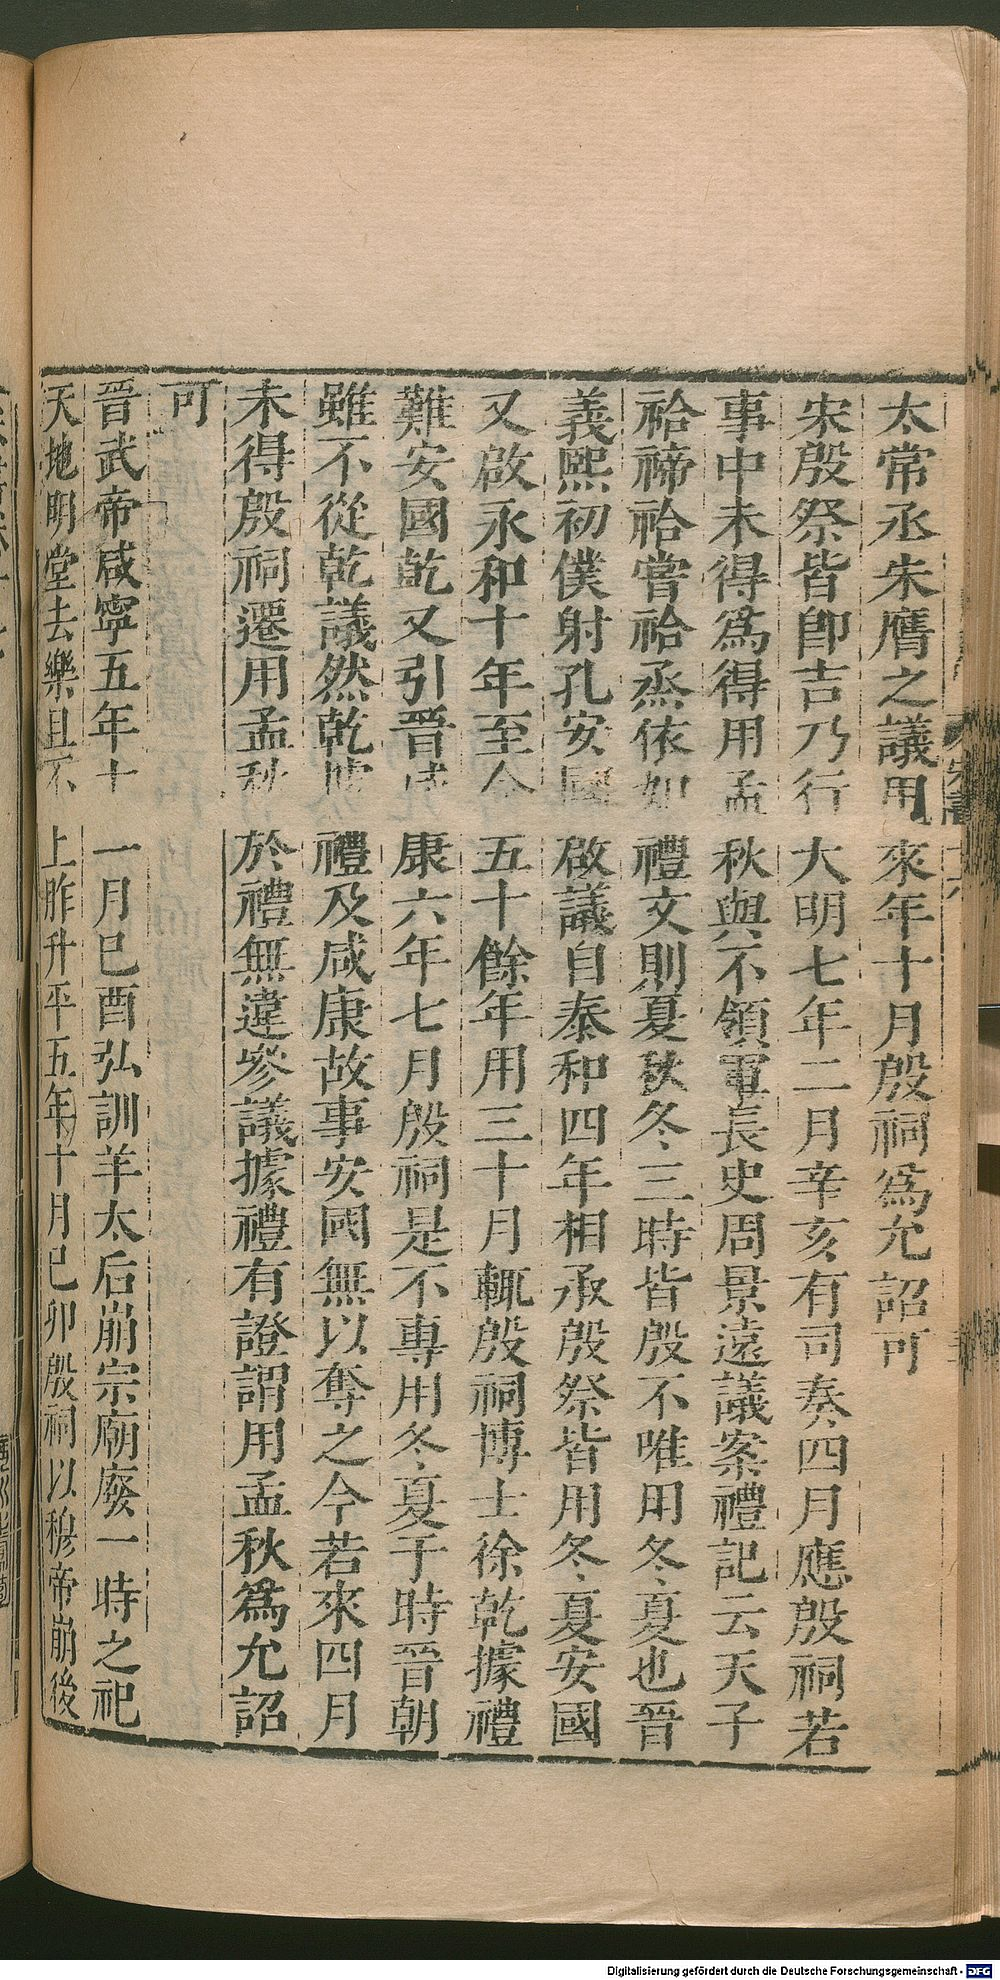 太常丞朱膺之議用來年十月殷祠爲允詔可
宋殷祭皆卽吉乃行大明七年二月辛亥有司奏四月應殷祠若
事中未得爲得用孟秋與不領軍長史周景遠議案禮記云天子
祫禘祫嘗祫烝依如禮文則夏秋冬三時皆殷不唯用冬夏也晉
義熙初僕射孔安國啟議自泰和四年相承殷祭皆用冬夏安國
又啟永和十年至今五十餘年用三十月輒殷祠博士徐乾據禮
難安國乾又引晉咸康六年七月殷祠是不專用冬夏于時晉朝
雖不從乾議然乾據禮及咸康故事安國無以奪之今若來四月
未得殷祠遷用孟秋於禮無違參議據禮有證謂用孟秋爲允詔
可
晉武帝咸寧五年十一月巳酉弘訓羊太后崩宗廟廢一時之祀
天地明堂去樂且不上胙升平五年十月巳卯殷祠以穆帝崩後
Digitalisierung gefördert durch die Deutsche Forschungsgemeinschaft - DFG